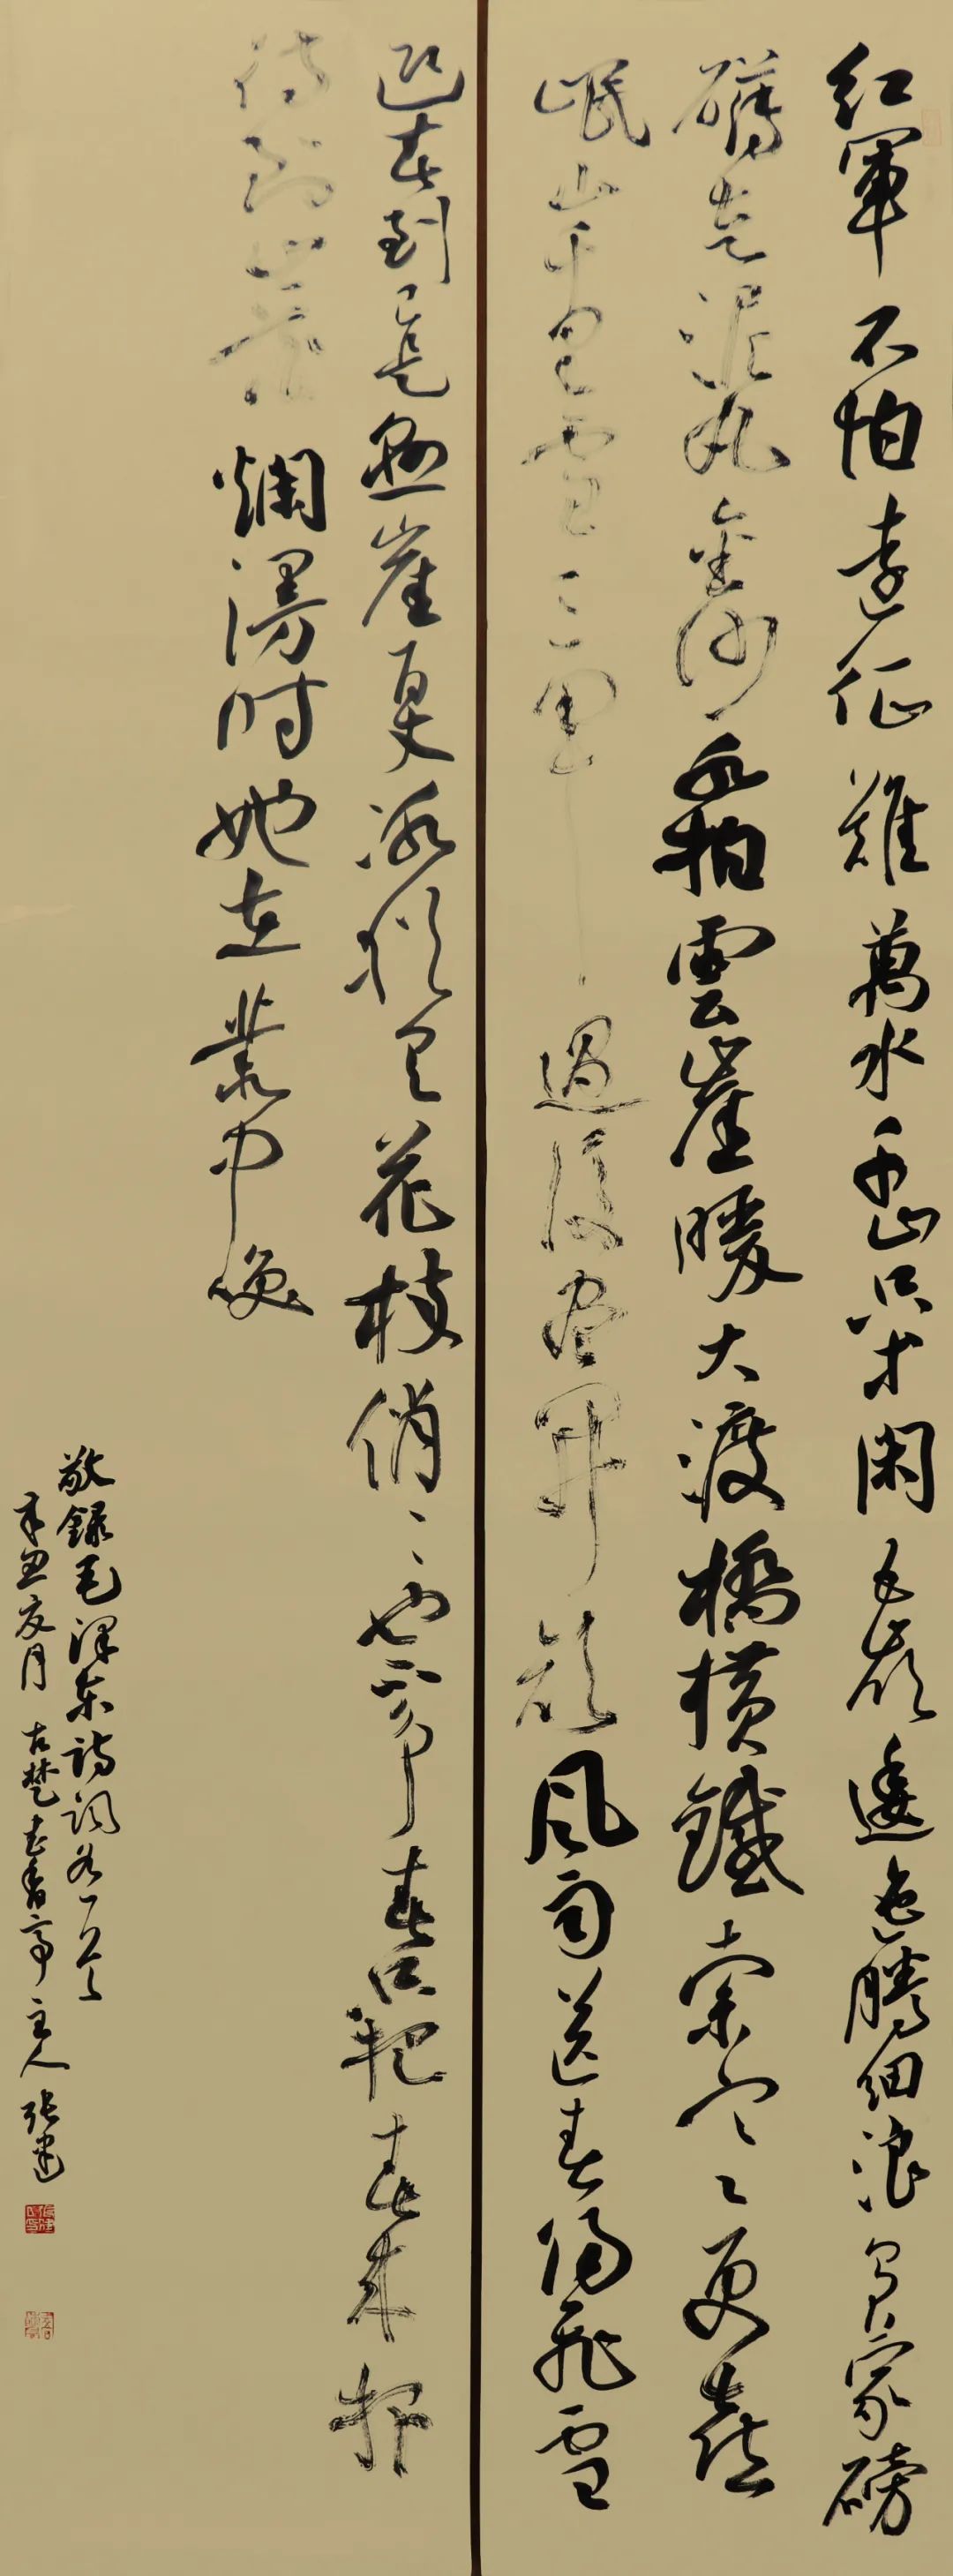 紅軍不怕遠征難萬水千山只等閑五嶺逶迤騰細浪烏蒙磅
礴走泥丸金沙水拍雲崖暖大渡橋橫鐵索寒更喜
岷山千里雪三軍過後盡開顏風雨送春歸飛雪
迎春到已是懸崖百丈冰猶有花枝俏〻也不爭春只把春來報
待到山花爛漫时她在叢中笑
敬録毛澤东詩詞各一首
辛丑夏月 古楚 香亭主人 張建